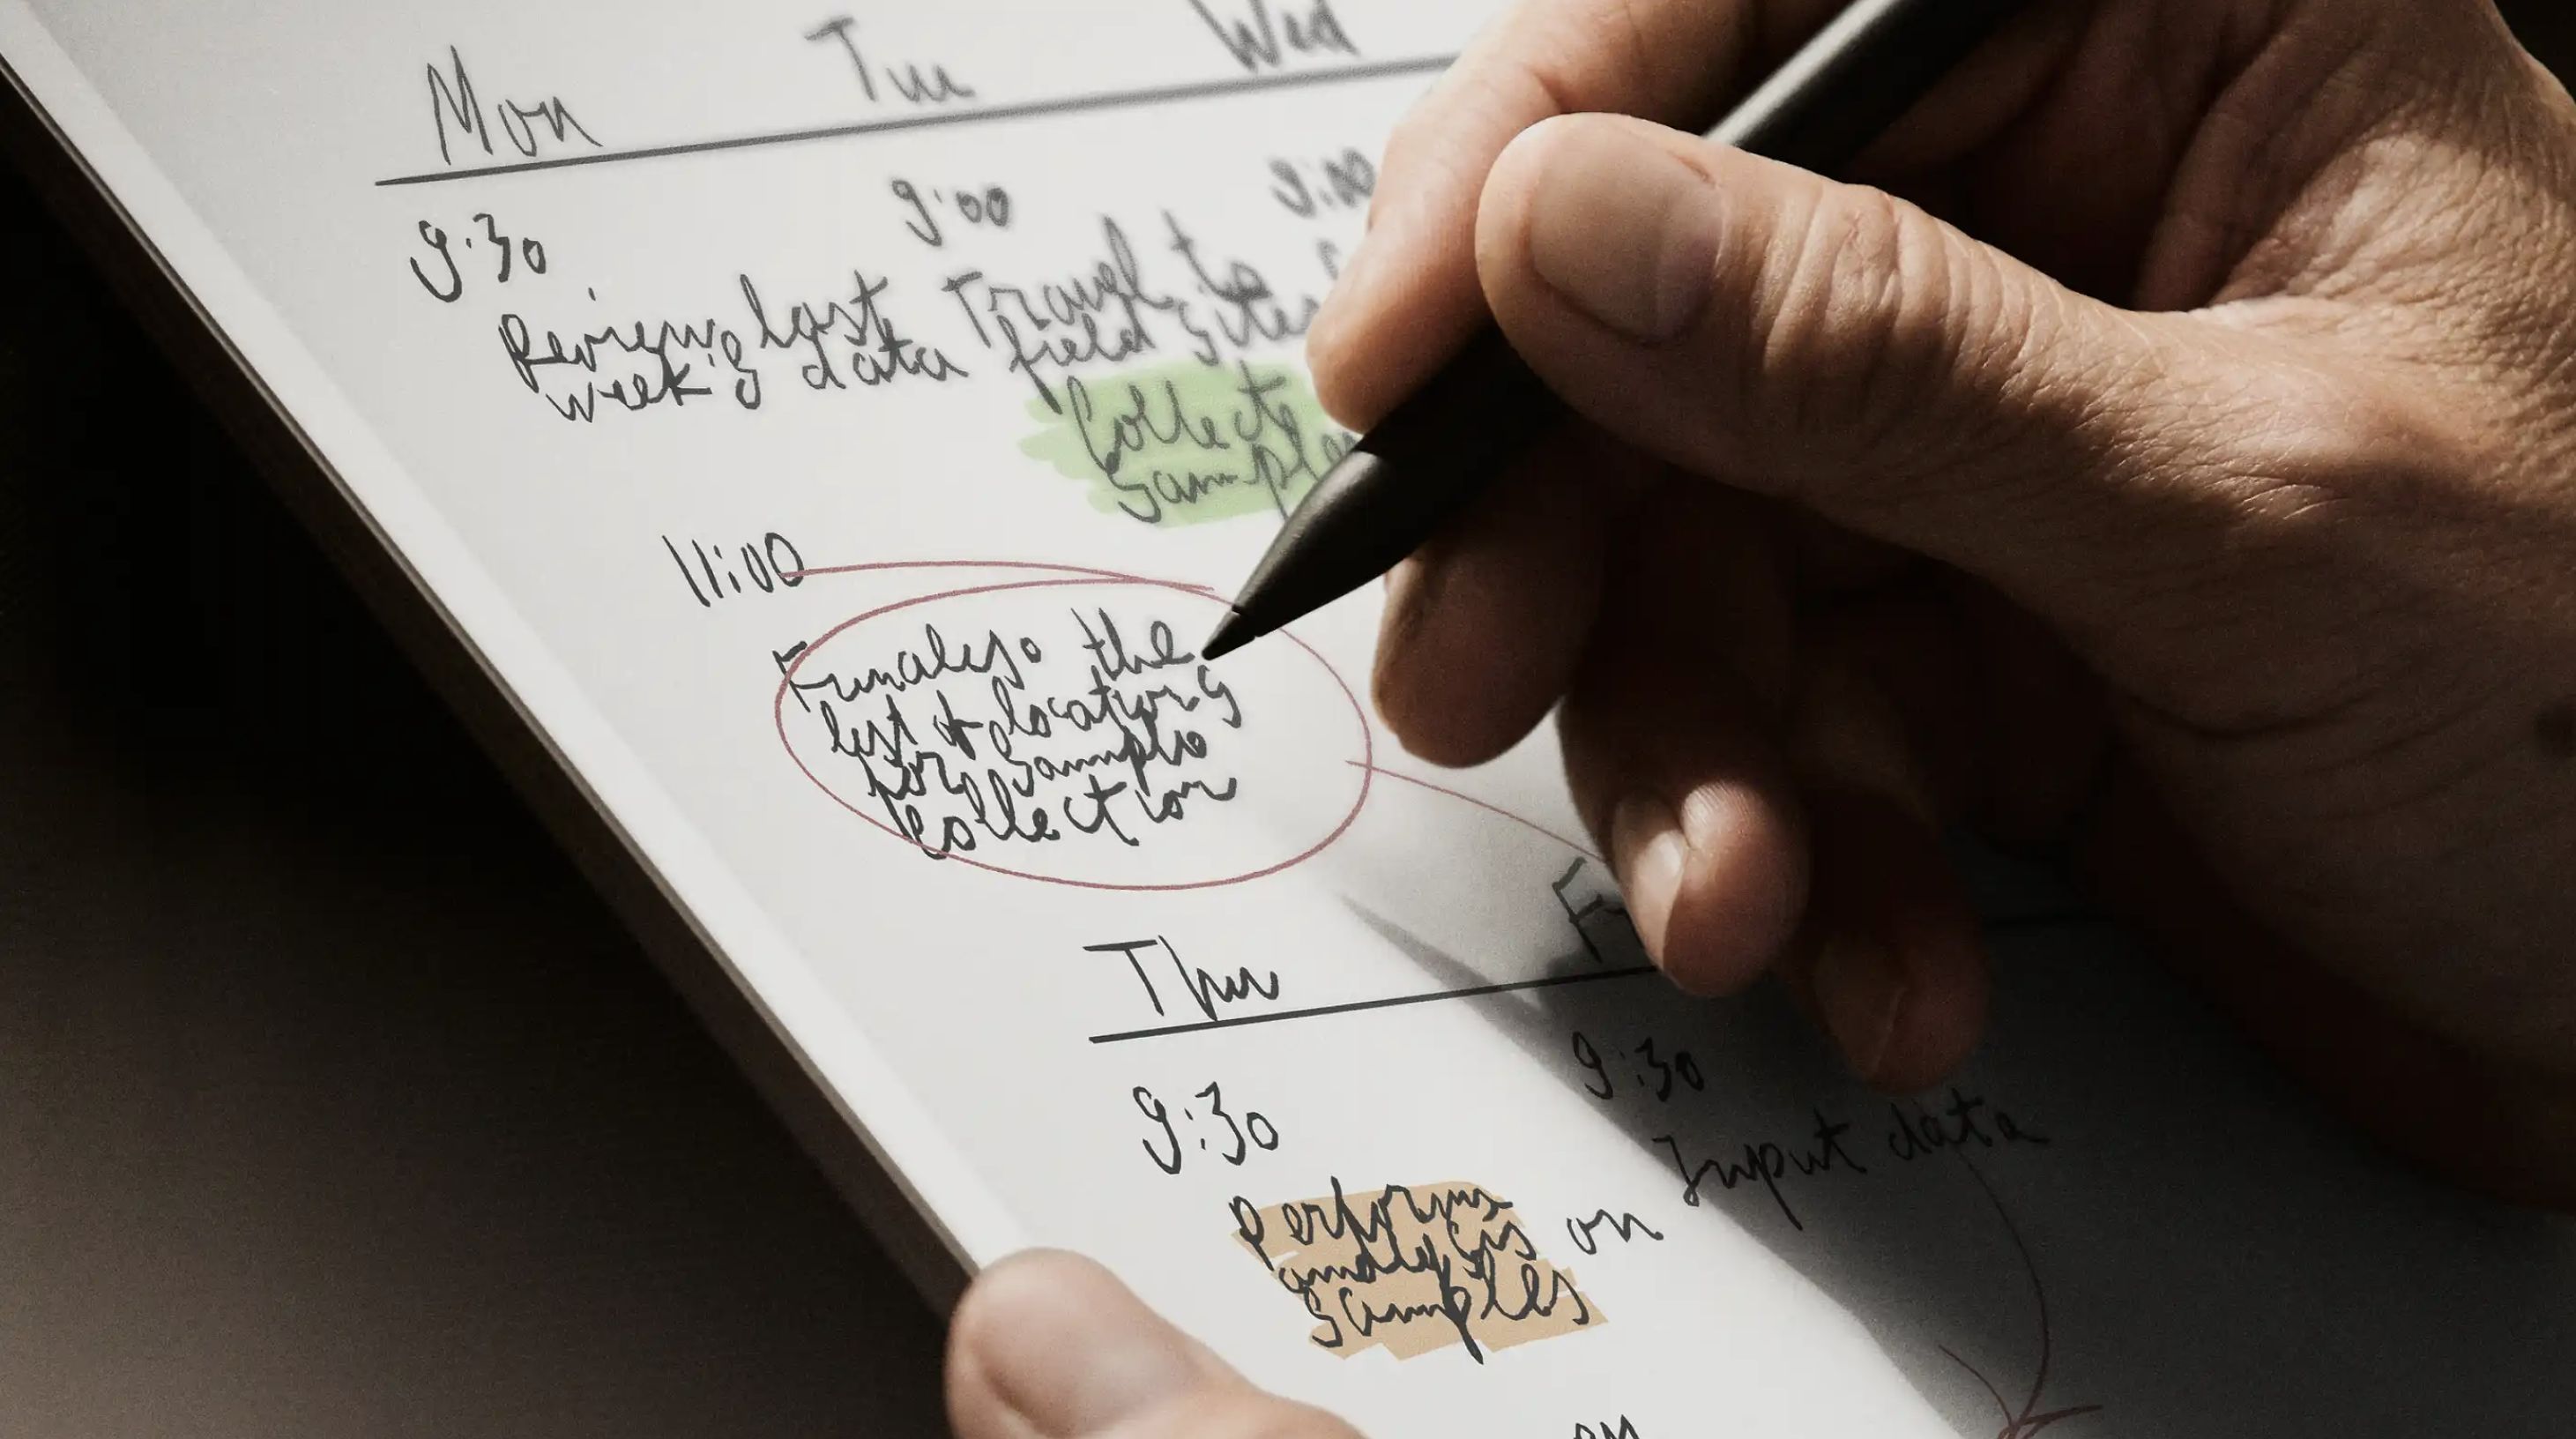 Mon Tue Wed
9:30
Review last
week's data
11:00
Finalise the
list of locations
for sample
collection
9:00
Travel to
field sites
Collect
samples
9:00
Thu
9:30
Perform
analysis on
samples
9:30
Input data